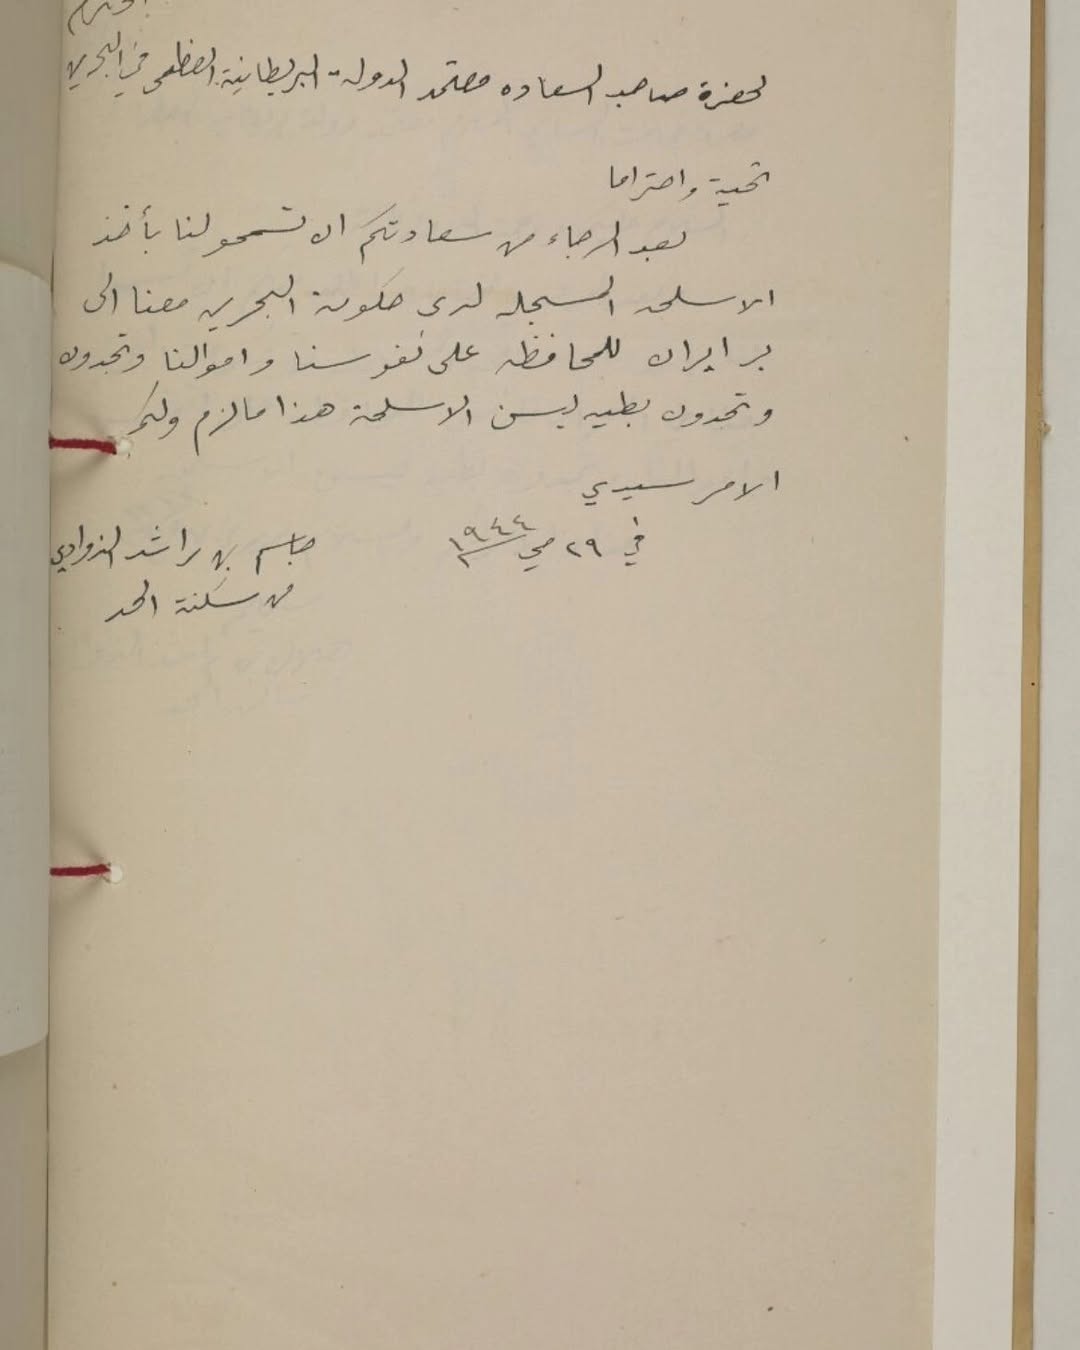 المحترم
لحضرة صاحب السعاده معتمد الدولة البريطانية العظمى في البحرين
تحية واحتراما
بعد الرجاء من سعادتكم ان تسمحو لنا بأخذ
الاسلحه المسجله لدى حكومة البحرين معنا الى
بر ايران للمحافظه على نفوسنا واموالنا وتجدون
وتجدون بطيه ليسن الاسلحة هذا مالزم ولكم
الامر سيدي
في ٢٩ مي ١٩٤٤
جاسم بن راشد الزوادي
من سكنة الحد